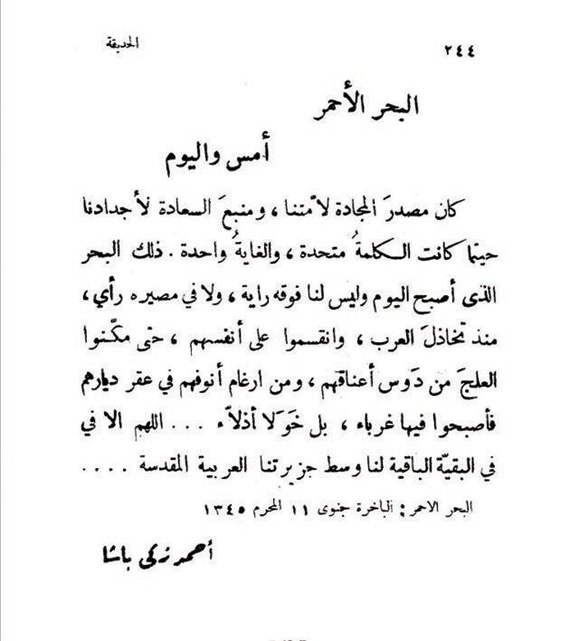 ٢٤٤ الحديقة
البحر الأحمر
أمس واليوم
كان مصدرَ المجادة لأمتنا ، ومنبعَ السعادة لأجدادنا
حيثما كانت الكلمةُ متحدة ، والغايةُ واحدة . ذلك البحر
الذى أصبح اليوم وليس لنا فوقه راية ، ولا في مصيره رأي ،
منذ تخاذلَ العرب ، وانقسموا على أنفسهم ، حتى مكّنوا
العلجَ من دَوس أعناقهم ، ومن ارغام أنوفهم في عقر ديارهم
فأصبحوا فيها غرباء ، بل خَوَلا أذلاّء ... اللهم الا في
في البقيّة الباقية لنا وسط جزيرتنا العربية المقدسة ....
البحر الاحمر : الباخرة جنوى ١١ المحرم ١٣٤٥
أحمد زكى باشا